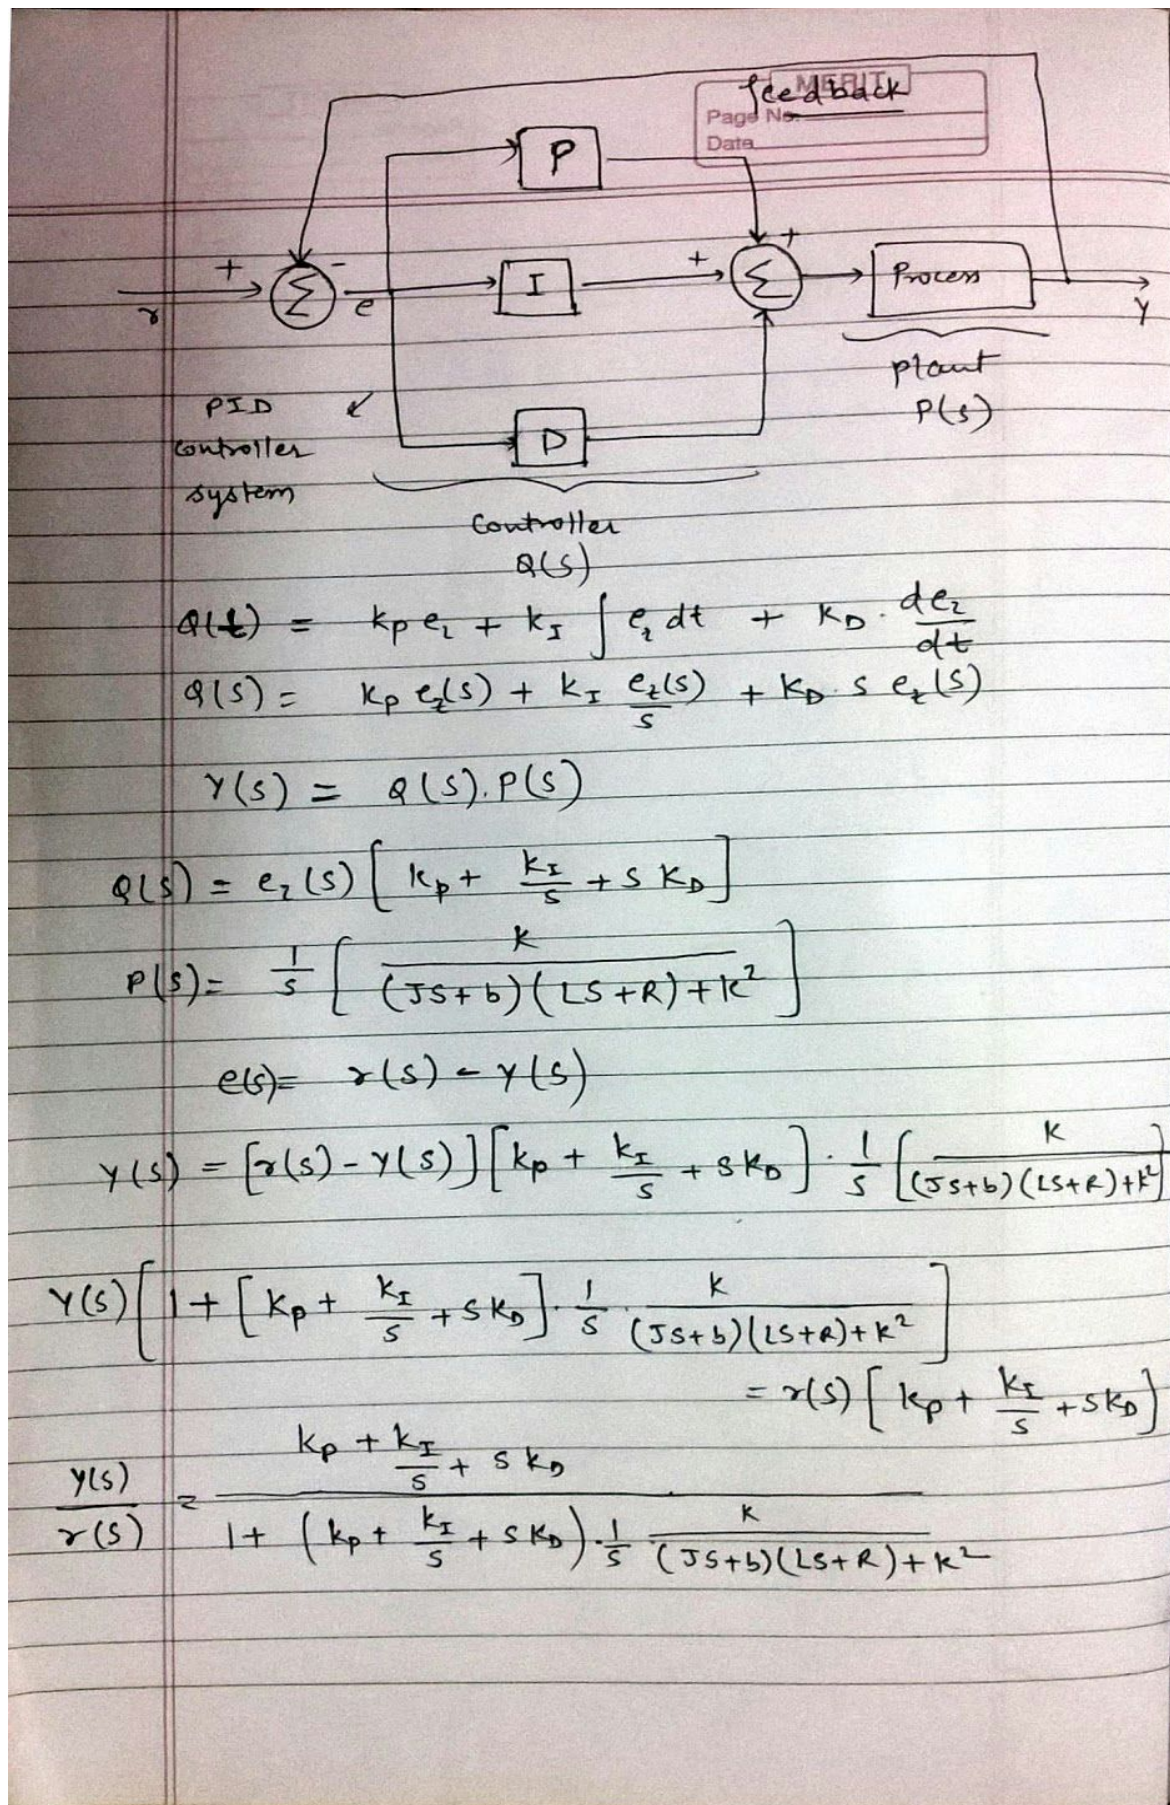 MERIT
feedback
Page No.
Date
P
+
+ - + I Σ Process
Σ
r e Y
plant
P(s)
PID
controller
system
D
Controller
Q(s)
Q(t) = kp e₂ + k_I ∫ e₂ dt + K_D · de₂/dt
Q(s) = kp e₂(s) + k_I e₂(s)/s + K_D · s e₂(s)
Y(s) = Q(s).P(s)
Q(s) = e₂(s) [ kp + k_I/s + s K_D ]
P(s) = 1/s [ K/((Js+b)(Ls+R)+k²) ]
e(s) = r(s) - Y(s)
Y(s) = [r(s) - Y(s)] [kp + k_I/s + s k_D] · 1/s [ K/((Js+b)(Ls+R)+k²) ]
Y(s) [ 1 + [kp + k_I/s + s k_D] · 1/s · K/((Js+b)(Ls+R)+k²) ]
= r(s) [ kp + k_I/s + s k_D ]
Y(s)/r(s) = (kp + k_I/s + s k_D)/(1 + (kp + k_I/s + s k_D) · 1/s K/((Js+b)(Ls+R)+k²))